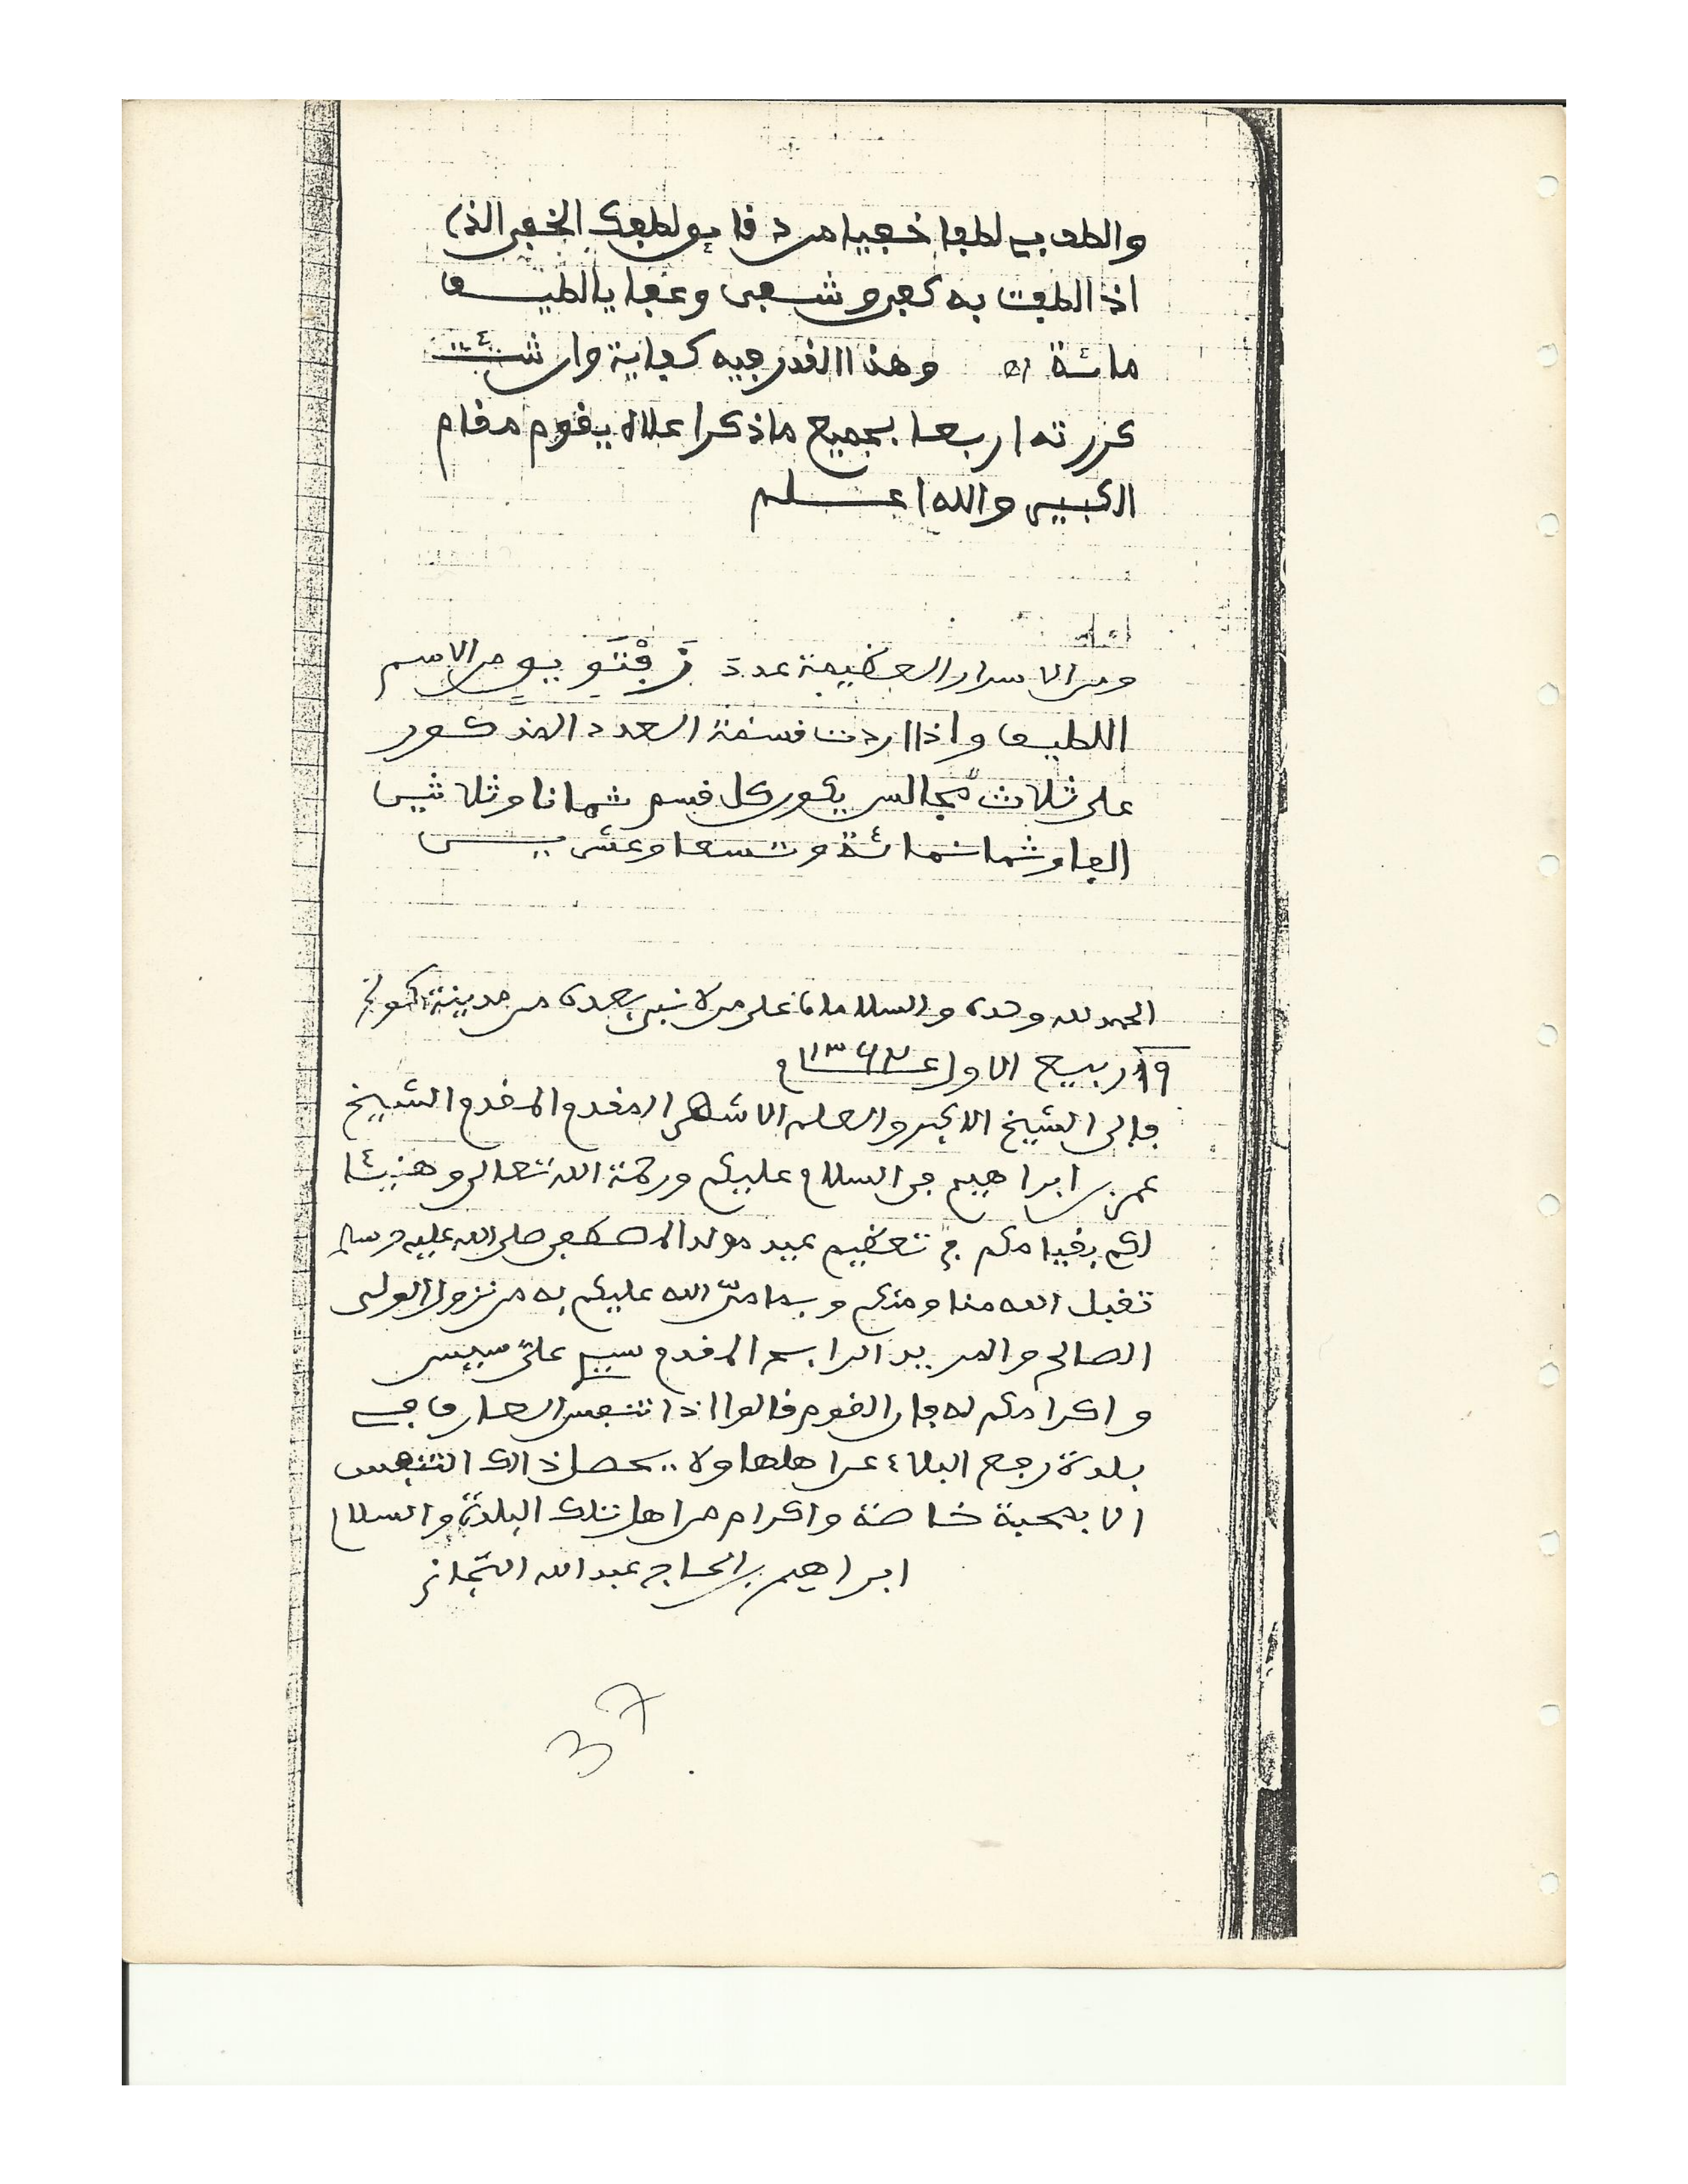 والطف بي لطفا خفيا من دقائق لطفك الخفي الذي
اذا لطفت به كفى وشفى وعفا يا لطيف
مائة اه وهذا القدر فيه كفاية وان شئت
كررته اربعا بجميع ما ذكر اعلاه يقوم مقام
الكبير والله اعلم
ومن الاسرار العظيمة عدد من الاسم
اللطيف واذا اردت قسمة العدد المذكور
على ثلاث مجالس يكون كل قسم ثمانا وثلاثين
الفا وثمانمائة وتسعا وعشرين
الحمد لله وحده والسلامان على من لا نبي بعده من مدينة كولخ
١٩ ربيع الاول ع
فالى الشيخ الاكبر والعلم الاشهر المقدم المقدم الشيخ
عمر بن ابراهيم في السلام عليكم ورحمة الله تعالى وهنيئا
لكم بقيامكم في تعظيم عيد مولد المصطفى صلى الله عليه وسلم
تقبل الله منا ومنكم وبما منّ الله عليكم به من نزول الولي
الصالح والمريد الرابح المقدم علي سيس
واكرامكم له فان القوم قالوا اذا تنفس العارف في
بلدة رجع البلاء عن اهلها ولا يحصل ذالك التنفس
الا بمحبة خاصة واكرام من اهل تلك البلدة والسلام
ابراهيم بن الحاج عبد الله التجاني
37